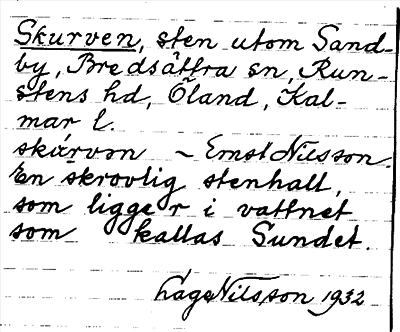 Skurven, sten utom Sand-
by, Bredsättra sn, Run-
stens hd, Öland, Kal-
mar l.
skúrvən ~ Ernst Nilsson.
En skrovlig stenhall,
som ligger i vattnet
som kallas Sundet.
Åage Nilsson 1932